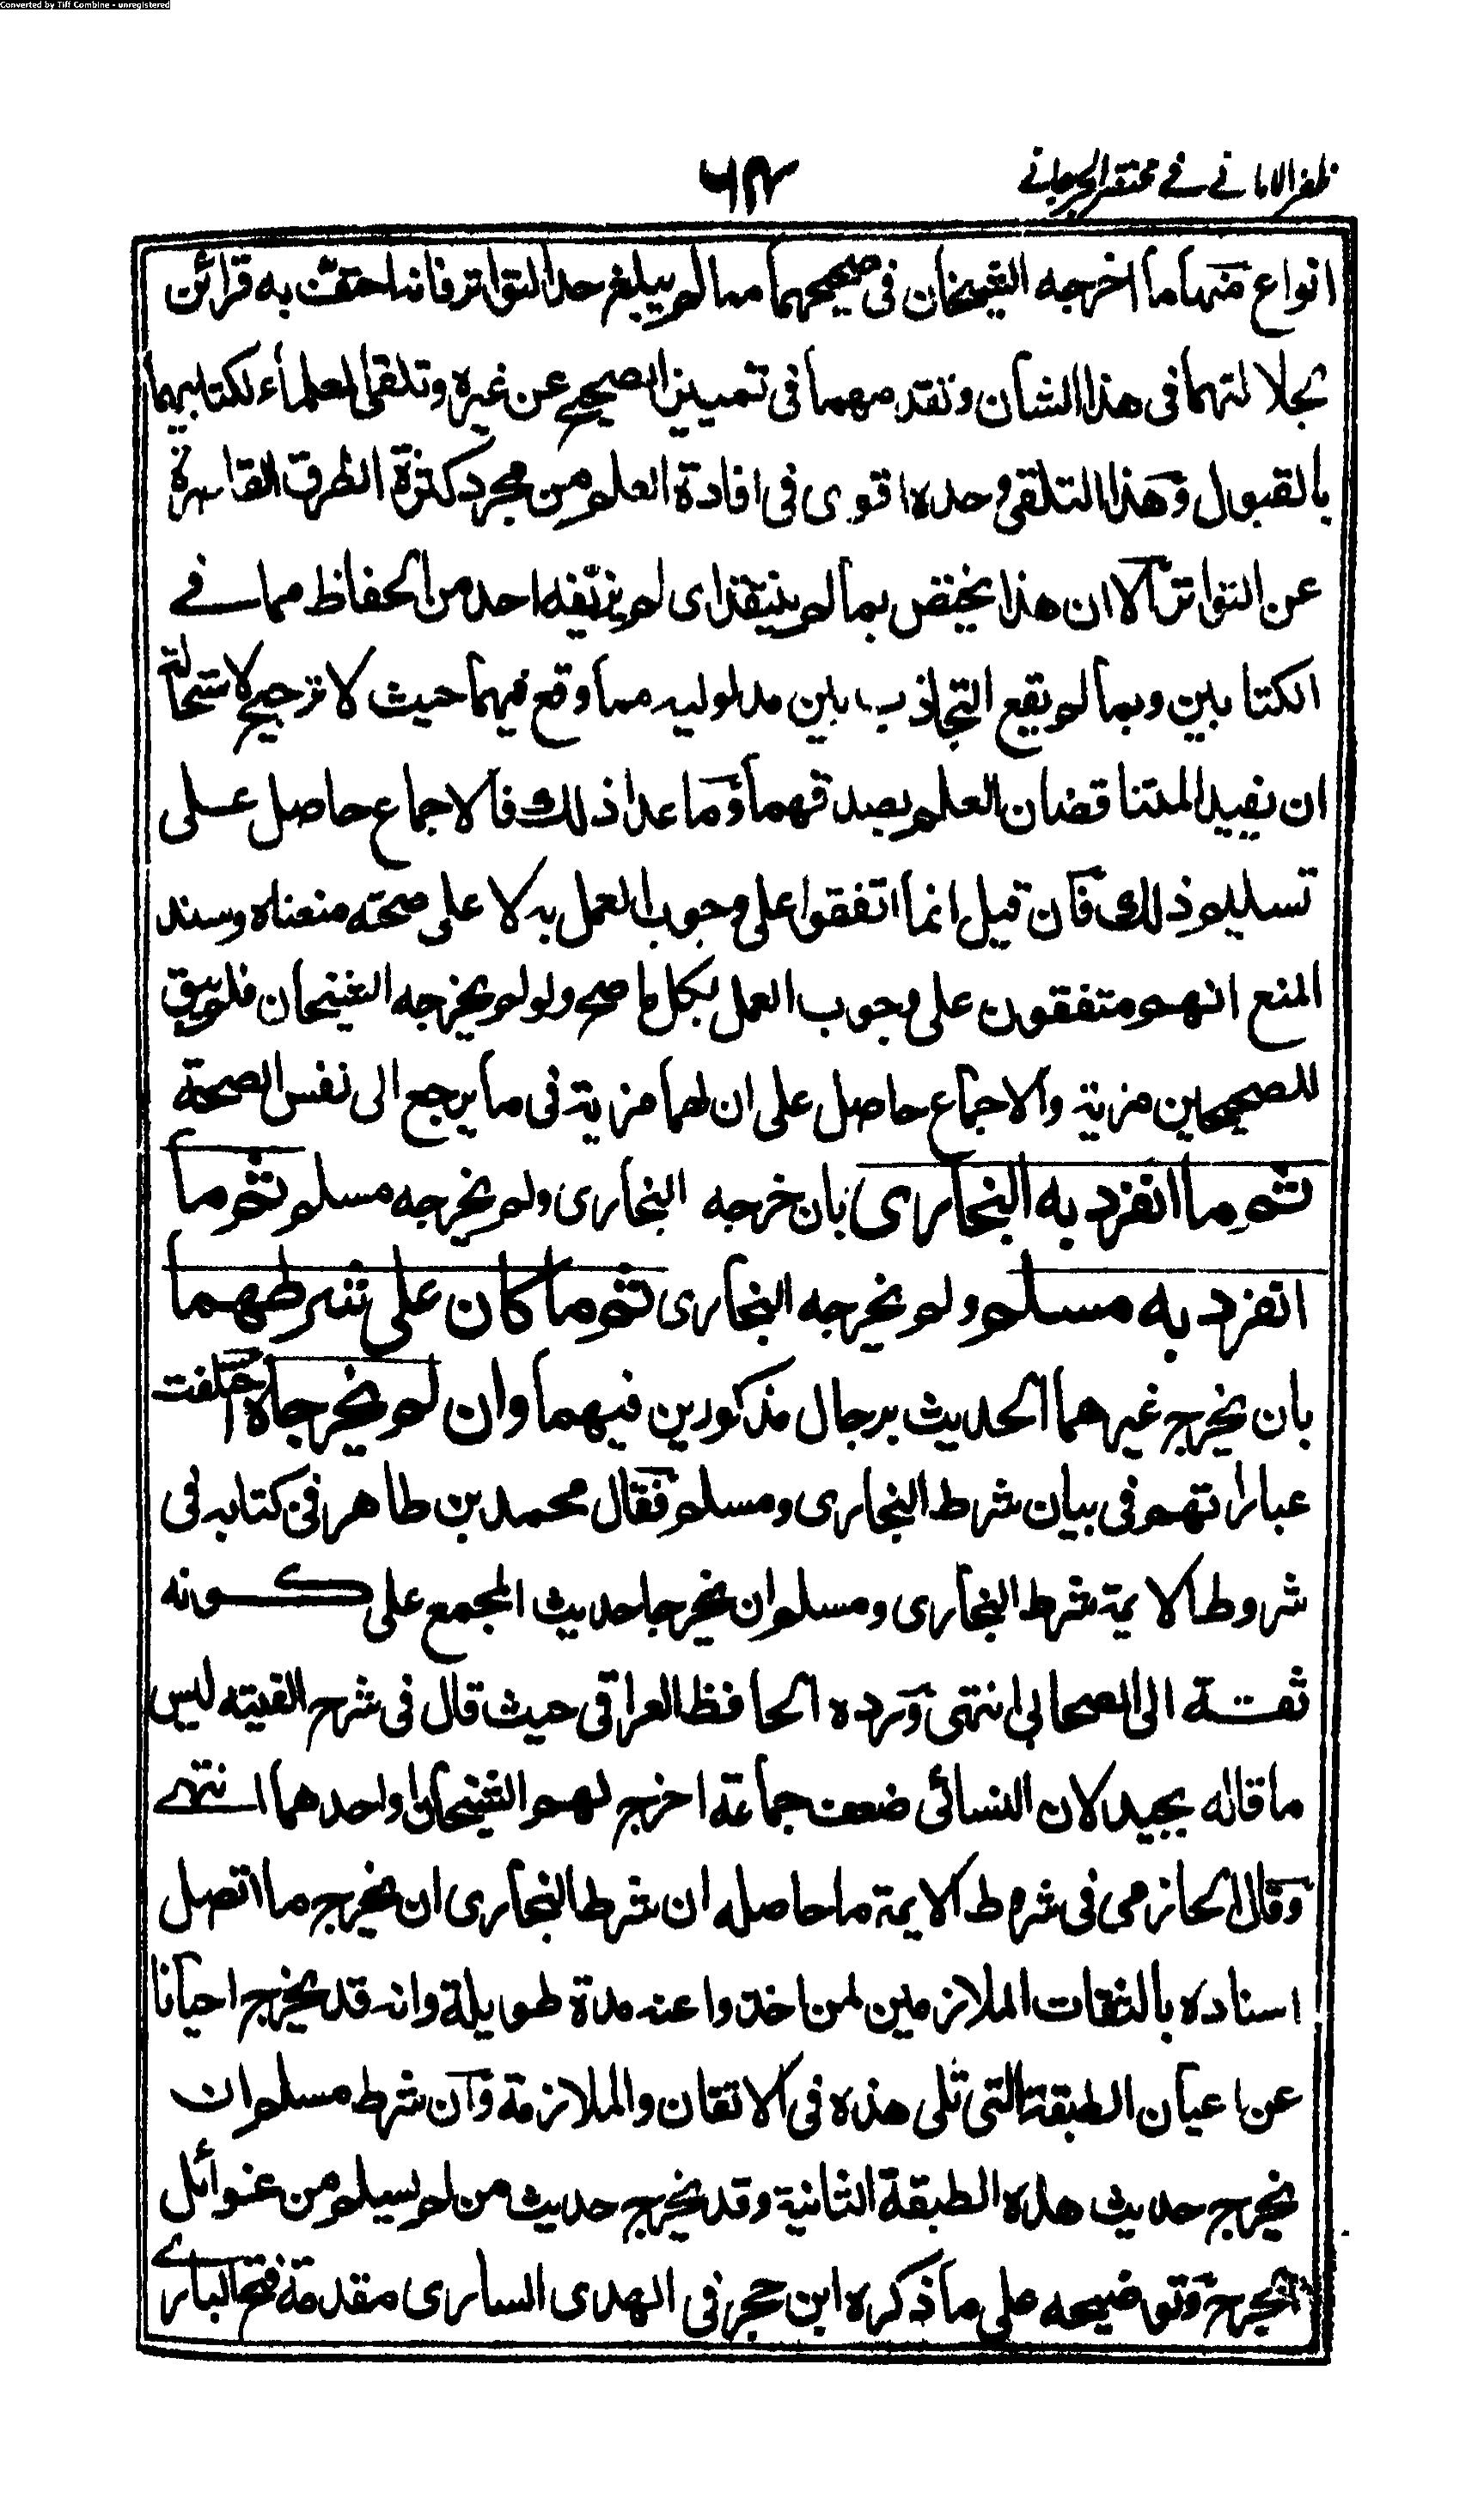 Converted by Tiff Combine - unregistered
ظفر الامانے فے مختصر الجرجانے
٦٣
انواع منها ما اخرجه الشيخان فی صحيحهما مما لم يبلغ حد التواتر فانه احتفت به قرائن
بجلالتهما فی هذا الشان وتقدمهما فی تمييز الصحيح عن غيره وتلقی العلماء لكتابيهما
بالقبول وهذا التلقی وحده اقوی فی افادة العلم من مجرد كثرة الطرق القاصرة
عن التواتر الا ان هذا يختص بما لم ينتقد ای لم يزيفه احد من الحفاظ مما فے
الكتابين وبما لم يقع التجاذب بين مدلوليه مما وقع فيهما حيث لا ترجيح لاستحالة
ان يفيد المتناقضان العلم بصدقهما وما عدا ذلك فالاجماع حاصل علی
تسليم ذلك فان قيل انما اتفقوا علی وجوب العمل به لا علی صحته منعناه وسند
المنع انهم متفقون علی وجوب العمل بكل ما صح ولو لم يخرجه الشيخان فلم يبق
للصحيحين مزية والاجماع حاصل علی ان لهما مزية فی ما يرجع الی نفس الصحة
ثم ما انفرد به البخاری بان خرجه البخاری ولم يخرجه مسلم ثم ما
انفرد به مسلم ولم يخرجه البخاری ثم ما كان علی شرطهما
بان يخرج غيرهما الحديث برجال مذكورين فيهما وان لم يخرجاه اختلفت
عباراتهم فی بيان شرط البخاری ومسلم فقال محمد بن طاهر فی كتابه فی
شروط الايمة شرط البخاری ومسلم ان يخرجا حديث المجمع علی كونه
ثقة الی الصحابی انتهی ورده الحافظ العراقی حيث قال فی شرح الفيته ليس
ما قاله بجيد لان النسائی ضعف جماعة اخرج لهم الشيخان او احدهما انتهے
وقال الحازمی فی شروط الايمة ما حاصله ان شرط البخاری ان يخرج ما اتصل
اسناده بالثقات الملازمين لمن اخذوا عنه مدة طويلة وانه قد يخرج احيانا
عن اعيان الطبقة التی تلی هذه فی الاتقان والملازمة وان شرط مسلم ان
يخرج حديث هذه الطبقة الثانية وقد يخرج حديث من لم يسلم من غوائل
الجرح وتوضيحه علی ما ذكره ابن حجر فی الهدی الساری مقدمة فتح الباری